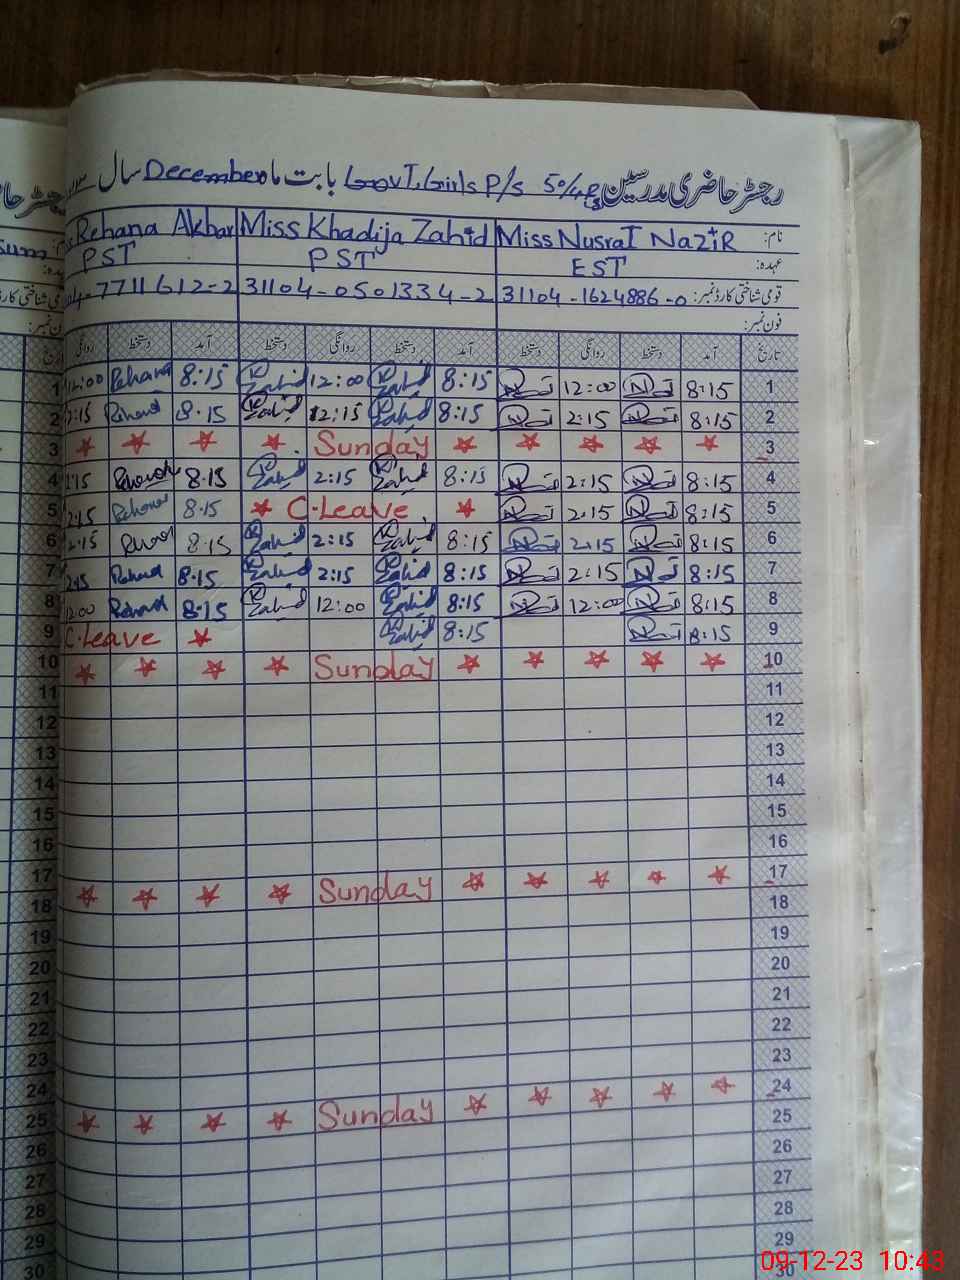 رجسٹر حاضری مدرسین Govt. Girls P/s 50/4R بابت ماہ December سال
نام: Miss Nusrat Nazir Miss Khadija Zahid Rehana Akbar
عہدہ: EST PST PST
قومی شناختی کارڈ نمبر: 31104-1624886-0 31104-0501334-2 04-7711612-2
فون نمبر:
تاریخ آمد دستخط روانگی دستخط آمد دستخط روانگی دستخط آمد دستخط روانگی تاریخ
1 8:15 12:00 8:15 Zahid 12:00 Zahid 8:15 Rehana 12:00 1
2 8:15 2:15 8:15 Zahid 12:15 Zahid 8.15 Rehana 2:15 2
3 Sunday 3
4 8:15 2:15 8:15 Zahid 2:15 Zahid 8.15 Rehana 2:15 4
5 8:15 2:15 C.Leave 8.15 Rehana 2:15 5
6 8:15 2:15 8:15 Zahid 2:15 Zahid 8.15 Rehana 2:15 6
7 8:15 2:15 8:15 Zahid 2:15 Zahid 8.15 Rehana 2:15 7
8 8:15 12:00 8:15 Zahid 12:00 Zahid 8.15 Rehana 12:00 8
9 8:15 8:15 Zahid C.Leave 9
10 Sunday 10
11 11
12 12
13 13
14 14
15 15
16 16
17 Sunday 17
18 18
19 19
20 20
21 21
22 22
23 23
24 Sunday 24
25 25
26 26
27 27
28 28
29 29
30 30
09-12-23 10:43